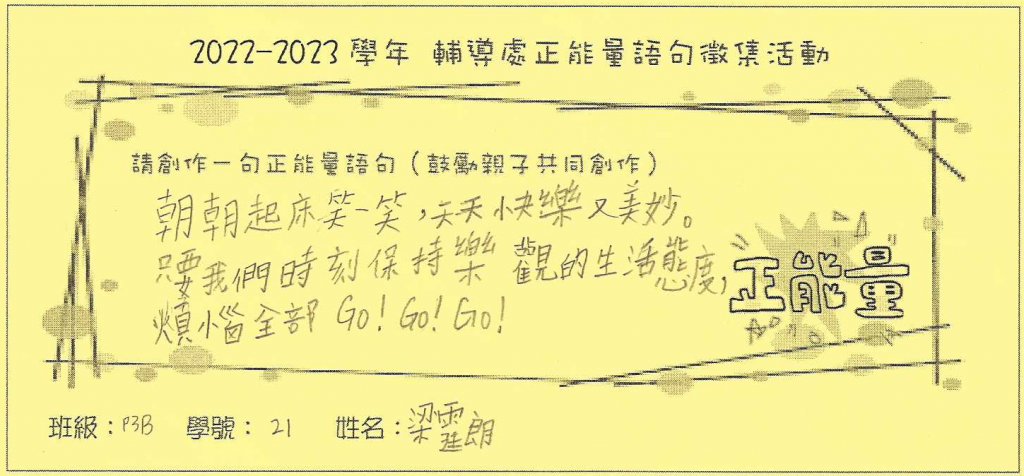 2022-2023學年 輔導處正能量語句徵集活動
請創作一句正能量語句(鼓勵親子共同創作)
朝朝起床笑一笑,天天快樂又美妙。
只要我們時刻保持樂觀的生活態度,
煩惱全部Go! Go! Go!
正能量
班級:P3B 學號:21 姓名:梁霆朗